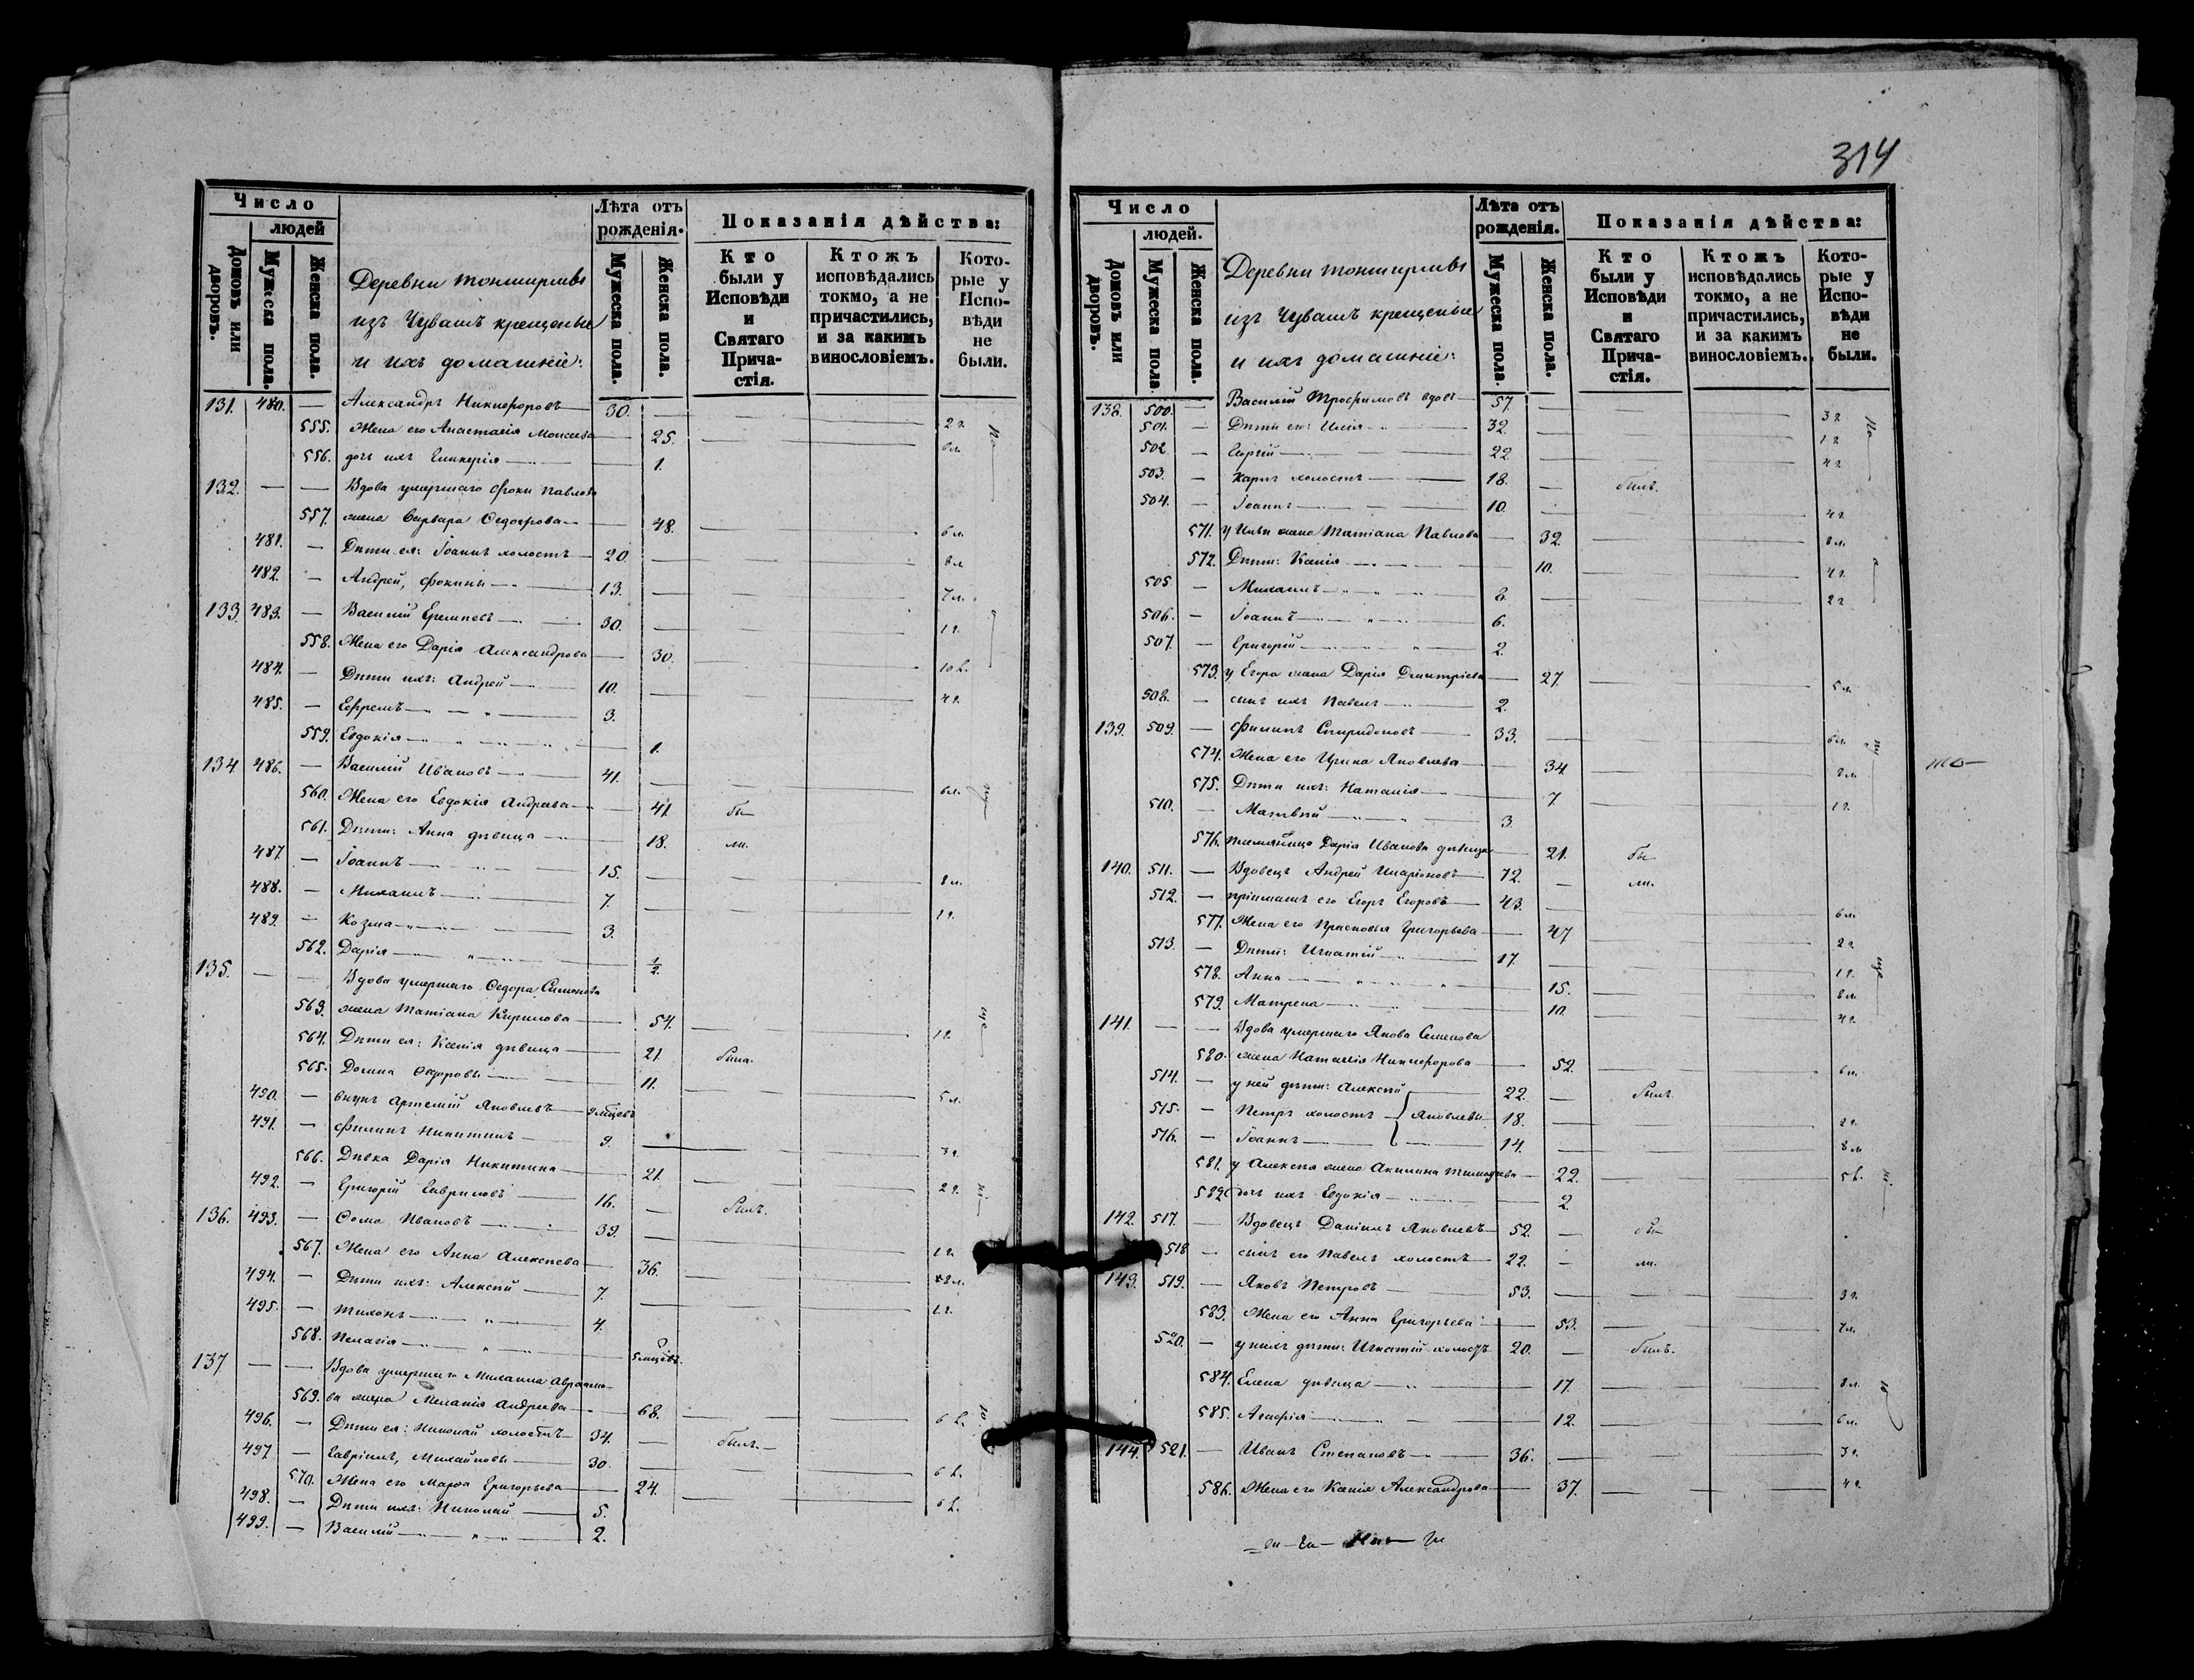 314
Число
людей
Домовъ или дворовъ.
Мужеска пола.
Женска пола.
Деревни
изъ Чувашъ крещеные
и ихъ домашніе:
Лѣта отъ рожденія.
Мужеска пола.
Женска пола.
Показанія дѣйства:
Кто были у Исповѣди и Святаго Причастія.
Ктожъ исповѣдались токмо, а не причастились, и за какимъ винословіемъ.
Которые у Исповѣди не были.
131. 480. — Александръ Никифоровъ 30. — 2 г.
555. Жена его Анастасія Моисеева 25.
556. дочь ихъ Гликерія 1.
132. — — Вдова умершаго Фоки Павлова
557. жена Варвара Ѳедорова 48. 6 л.
481. — Дѣти ея: Іоаннъ холостъ 20. — 8 л.
482. — Андрей, Фокины 13. — 7 л.
133. 483. — Василій 30. — 1 г.
558. Жена его Дарія Александрова 30. 10 л.
484. — Дѣти ихъ: Андрей 10. — 4 г.
485. — Ефремъ 3.
559. Евдокія 1.
134. 486. — Василій Ивановъ 41. — 6 л.
560. Жена его Евдокія Андреева 41. бы
561. Дѣти: Анна дѣвица 18. ли.
487. — Іоаннъ 15. — 8 л.
488. — Михаилъ 7. — 1 г.
489. — Козма 3.
562. Дарія ½.
135. — — Вдова умершаго Ѳедора Симонова
563. жена Татіана Кирилова 54. 1 г.
564. Дѣти ея: Ксенія дѣвица 21. была.
565. Домна Ѳедоровы 11. 5 л.
490. — внукъ Артемій Яковлевъ 9 мѣцевъ
491. — Филипъ Никитинъ 9. 3 г.
566. Дѣвка Дарія Никитина 21. 2 г.
492. — Григорій Гавриловъ 16. — былъ.
136. 493. — Ѳома Ивановъ 39. — 1 г.
567. Жена его Анна Алексѣева 36. 8 л.
494. — Дѣти ихъ: Алексѣй 7. 1 г.
495. — Тихонъ 4.
568. Пелагія 5 мѣцевъ.
137 — — Вдова умершаго Михаила Авраамо-
569. ва жена Меланія Андреева 68. 6 л.
496. — Дѣти ея: Николай холостъ 34. — былъ.
497 — Гавріилъ, Михайловы 30. — 6 л.
570. Жена его Марѳа Григорьева 24. 6 л.
498. — Дѣти ихъ: Николай 5.
499. — Василій 2.
Число
людей.
Домовъ или дворовъ.
Мужеска пола.
Женска пола.
Деревни
изъ Чувашъ крещеные
и ихъ домашніе:
Лѣта отъ рожденія.
Мужеска пола.
Женска пола.
Показанія дѣйства:
Кто были у Исповѣди и Святаго Причастія.
Ктожъ исповѣдались токмо, а не причастились, и за какимъ винословіемъ.
Которые у Исповѣди не были.
138. 500. — Василій Трофимовъ вдовъ 57. — 3 г.
501. — Дѣти его: Илія 32. — 1 г.
502. — Георгій 22. — 4 г.
503. — Карпъ холостъ 18. — былъ.
504. — Іоаннъ 10. — 4 г.
571. у Ильи жена Татіана Павлова 32. 8 л.
572. Дѣти: Ксенія 10. 4 г.
505 — Михаилъ 8. — 2 г.
506. — Іоаннъ 6.
507. — Григорій 2.
573. у Егора жена Дарія Димитріева 27. 5 л.
508. — сынъ ихъ Павелъ 2.
139. 509. — Филипъ Спиридоновъ 33. — 6 л.
574. Жена его Ирина Яковлева 34. 8 л.
575. Дѣти ихъ: Наталія 7 1 г.
510. — Матвѣй 3.
576. племянница Дарія Иванова дѣвица 21. бы
140. 511. — Вдовецъ Андрей Иларіоновъ 72. — ли.
512. — пріимышъ его Егоръ Егоровъ 43. — 6 л.
577. Жена его Прасковья Григорьева 47 2 г.
513. — Дѣти: Игнатій 17. — 1 г.
578. Анна 15. 8 л.
579. Матрена 10. 4 г.
141. — — Вдова умершаго Якова Семенова
580. жена Наталія Никифорова 52. 6 л.
514. — у ней дѣти: Алексѣй 22. — былъ.
515. — Петръ холостъ Яковлевы 18. 2 г.
516. — Іоаннъ 14. 8 л.
581. у Алексѣя жена Акилина Тимофеева 22. 5 л.
582. дочь ихъ Евдокія 2.
142. 517. — Вдовецъ Даніилъ Яковлевъ 52. — бы
518 — сынъ его Павелъ холостъ 22. — ли.
143. 519. — Яковъ Петровъ 53. — 3 г.
583. Жена его Анна Григорьева 53. 7 л.
520. — у нихъ дѣти: Игнатій холостъ 20. — былъ.
584. Елена дѣвица 17. 8 л.
585. Агафія 12. 6 л.
144. 521. — Иванъ Степановъ 36. — 3 г.
586. Жена его Ксенія Александрова 37. 4 г.